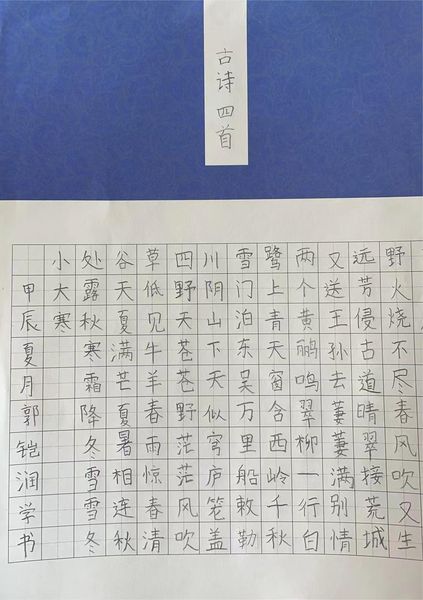 古诗四首
野火烧不尽春风吹又生
远芳侵古道晴翠接荒城
又送王孙去萋萋满别情
两个黄鹂鸣翠柳一行白
鹭上青天窗含西岭千秋
雪门泊东吴万里船敕勒
川阴山下天似穹庐笼盖
四野天苍苍野茫茫风吹
草低见牛羊春雨惊春清
谷天夏满芒夏暑相连秋
处露秋寒霜降冬雪雪冬
小大寒
甲辰夏月郭铠润学书